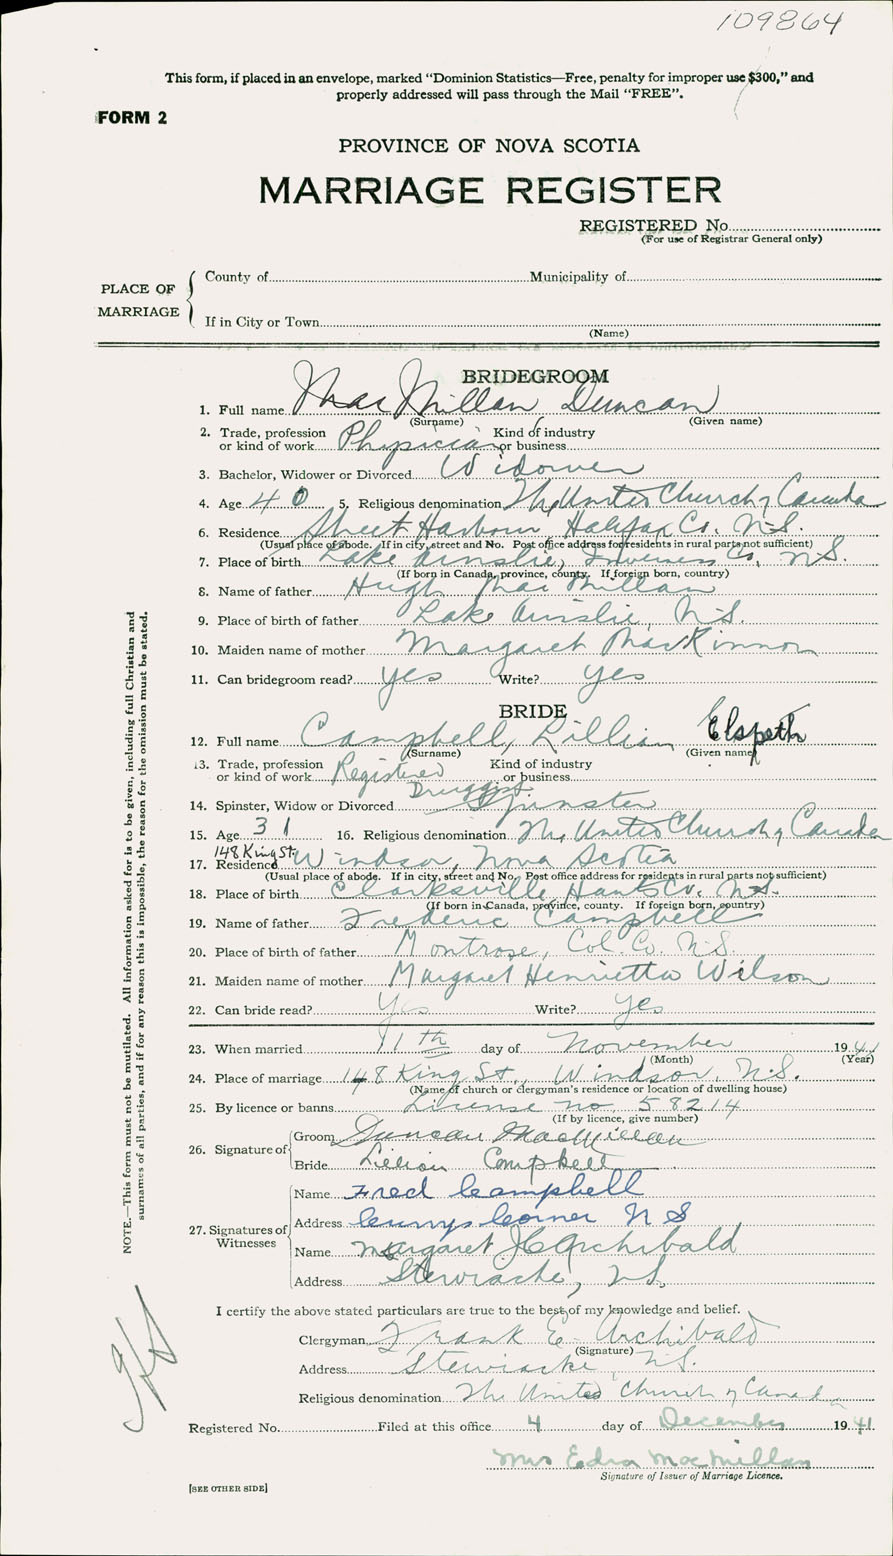 109864
This form, if placed in an envelope, marked "Dominion Statistics—Free, penalty for improper use $300," and
properly addressed will pass through the Mail "FREE".
FORM 2
PROVINCE OF NOVA SCOTIA
MARRIAGE REGISTER
REGISTERED No.
(For use of Registrar General only)
PLACE OF MARRIAGE
County of Municipality of
If in City or Town
(Name)
BRIDEGROOM
1. Full name MacMillan Duncan
(Surname) (Given name)
2. Trade, profession or kind of work Physician Kind of industry or business
3. Bachelor, Widower or Divorced Widower
4. Age 40 5. Religious denomination The United Church of Canada
6. Residence Sheet Harbour, Halifax Co. N.S.
(Usual place of abode. If in city, street and No. Post office address for residents in rural parts not sufficient)
7. Place of birth Lake Ainslie, Inverness Co, N.S.
(If born in Canada, province, county. If foreign born, country)
8. Name of father Hugh MacMillan
9. Place of birth of father Lake Ainslie, N.S.
10. Maiden name of mother Margaret MacKinnon
11. Can bridegroom read? yes Write? yes
BRIDE
12. Full name Campbell, Lillian Elspeth
(Surname) (Given name)
13. Trade, profession or kind of work Registered Druggist Kind of industry or business
14. Spinster, Widow or Divorced Spinster
15. Age 31 16. Religious denomination The United Church of Canada
17. Residence 148 King St. Windsor, Nova Scotia
(Usual place of abode. If in city, street and No. Post office address for residents in rural parts not sufficient)
18. Place of birth Clarksville Hants Co. N.S.
(If born in Canada, province, county. If foreign born, country)
19. Name of father Frederic Campbell
20. Place of birth of father Montrose, Col. Co. N.S.
21. Maiden name of mother Margaret Henrietta Wilson
22. Can bride read? Yes Write? yes
23. When married 11th day of November 1941
(Month) (Year)
24. Place of marriage 148 King St., Windsor, N.S.
(Name of church or clergyman's residence or location of dwelling house)
25. By licence or banns License no. 58214
(If by licence, give number)
26. Signature of
Groom Duncan MacMillan
Bride Lillian Campbell
27. Signatures of Witnesses
Name Fred Campbell
Address Currys Corner N S
Name Margaret H Archibald
Address Stewiacke, N.S.
I certify the above stated particulars are true to the best of my knowledge and belief.
Clergyman Frank E. Archibald
(Signature)
Address Stewiacke N.S.
Religious denomination The United Church of Canada
Registered No. Filed at this office 4 day of December 1941
Mrs Edna MacMillan
Signature of Issuer of Marriage Licence.
[SEE OTHER SIDE]
NOTE.—This form must not be mutilated. All information asked for is to be given, including full Christian and
surnames of all parties, and if for any reason this is impossible, the reason for the omission must be stated.